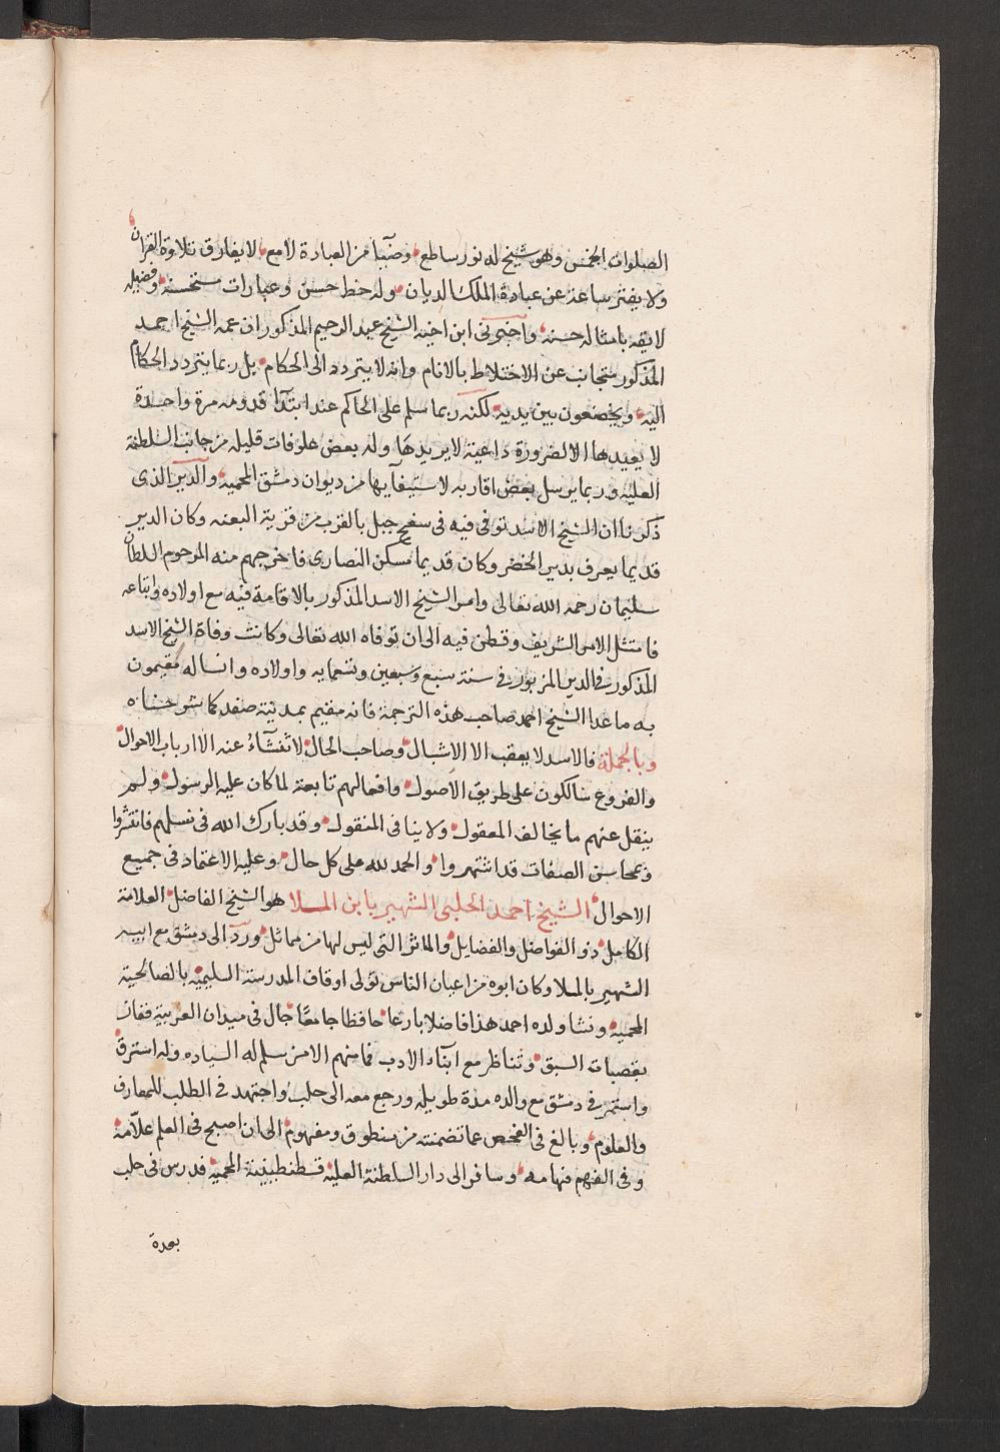 الصلوات الخمس وهو شيخ له نور ساطع وضيآ من العبادة لامع لا يفارق تلاوة القران
ولا يفتر ساعة عن عبادة الملك الديان وله خط حسن وعبارات مستحسنة وفضيلة
لايقه بامثاله حسنة واخبرنى ابن اخيه الشيخ عبد الرحيم المذكور ان عمه الشيخ احمد
المذكور متجانب عن الاختلاط بالانام وانه لا يتردد الى الحكام بل ربما يتردد الحكام
اليه ويخضعون بين يديه لكنه ربما سلم على الحاكم عند ابتدآ قدومه مرة واحدة
لا يعيدها الا لضرورة داعية لا يريدها وله بعض علوفات قليله من جانب السلطنة
العليه وربما يرسل بعض اقاربه لاستيفآيها من ديوان دمشق المحمية والدير الذى
ذكرنا ان الشيخ الاسد توفى فيه فى سفح جبل بالقرب من قرية البعنه وكان الدير
قديما يعرف بدير الخضر وكان قديما مسكن النصارى فاخرجهم منه المرحوم السلطان
سليمان رحمه الله تعالى وامر الشيخ الاسد المذكور بالاقامة فيه مع اولاده واتباعه
فامتثل الامر الشريف وقطن فيه الى ان توفاه الله تعالى وكانت وفاة الشيخ الاسد
المذكور فى الدير المزبور فى سنة سبع وسبعين وتسعمايه واولاده وانساله مقيمون
به ما عدا الشيخ احمد صاحب هذه الترجمة فانه مقيم بمدينة صفد كما شرحناه
وبالجملة فالاسد لا يعقب الا الاشبال وصاحب الحال لا تنشآء عنه الا ارباب الاحوال
والفروع سالكون على طريق الاصول وافعالهم تابعة لما كان عليه الرسول ولم
ينقل عنهم ما يخالف المعقول ولا ينافى المنقول وقد بارك الله فى نسلهم فانتشروا
وبمحاسن الصفات قد اشتهروا والحمد لله على كل حال وعليه الاعتماد فى جميع
الاحوال الشيخ احمد الحلبى الشهير بابن الملا هو الشيخ الفاضل العلامة
الكامل ذو الفواضل والفضايل والماثر التى ليس لها من مماثل ورد الى دمشق مع ابيه
الشهير بالملا وكان ابوه من اعيان الناس تولى اوقاف المدرسة السليمية بالصالحية
المحمية ونشا ولده احمد هذا فاضلا بارعا حافظا جامعًا جال فى ميدان العربية ففاز
بقصبات السبق وتناظر مع ابنآء الادب فما منهم الا من سلم له السياده وله استرق
واستمر فى دمشق مع والده مدة طويله ورجع معه الى حلب واجتهد فى الطلب للمعارف
والعلوم وبالغ فى الفحص عما تضمنته من منطوق ومفهوم الى ان اصبح فى العلم علّامة
وفى الفهم فهامه وسافر الى دار السلطنة العلية قسطنطينية المحمية فدرس فى حلب
بعدة